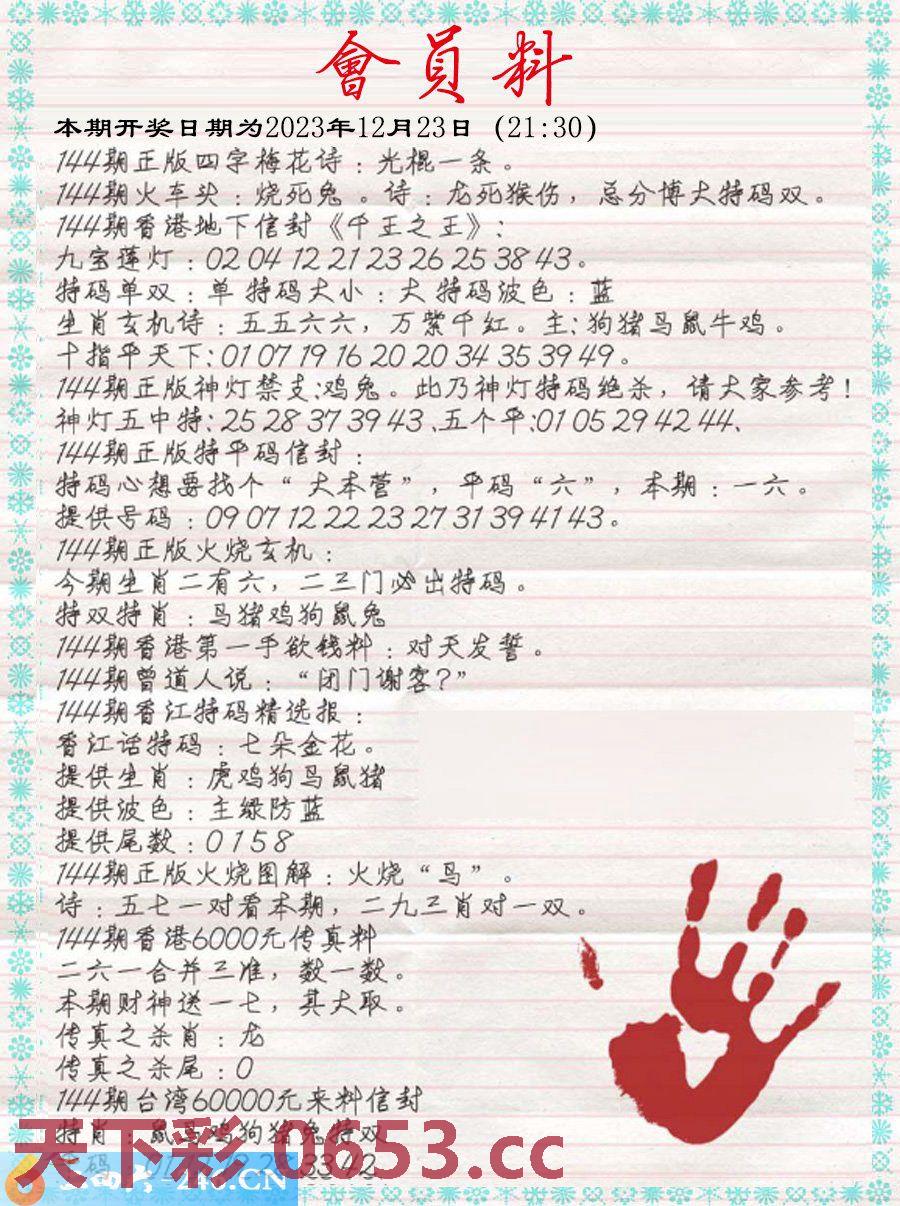 會員料
本期开奖日期为2023年12月23日 (21:30)
144期正版四字梅花诗：光棍一条。
144期火车头：烧死兔 。诗：龙死猴伤，总分博大特码双。
144期香港地下信封《千王之王》：
九宝莲灯：02 04 12 21 23 26 25 38 43。
特码单双：单 特码大小：大 特码波色：蓝
生肖玄机诗：五五六六，万紫千红。主：狗猪马鼠牛鸡。
十指平天下：01 07 19 16 20 20 34 35 39 49。
144期正版神灯禁支：鸡兔。此乃神灯特码绝杀，请大家参考！
神灯五中特：25 28 37 39 43、五个平：01 05 29 42 44、
144期正版特平码信封：
特码心想要找个“大本营”，平码“六”，本期：一六。
提供号码：09 07 12 22 23 27 31 39 41 43。
144期正版火烧玄机：
今期生肖二有六，二三门必出特码。
特双特肖：马猪鸡狗鼠兔
144期香港第一手欲钱料：对天发誓。
144期曾道人说：“闭门谢客？”
144期香江特码精选报：
香江话特码：七朵金花。
提供生肖：虎鸡狗马鼠猪
提供波色：主绿防蓝
提供尾数：0 1 5 8
144期正版火烧图解：火烧“鸟”。
诗：五七一对看本期，二九三肖对一双。
144期香港6000元传真料
二六一合并三准，数一数。
本期财神送一七，其大取。
传真之杀肖：龙
传真之杀尾：0
144期台湾60000元来料信封
特肖：鼠马鸡狗猪兔特双
天下彩 0653.cc
33 42
246.CN